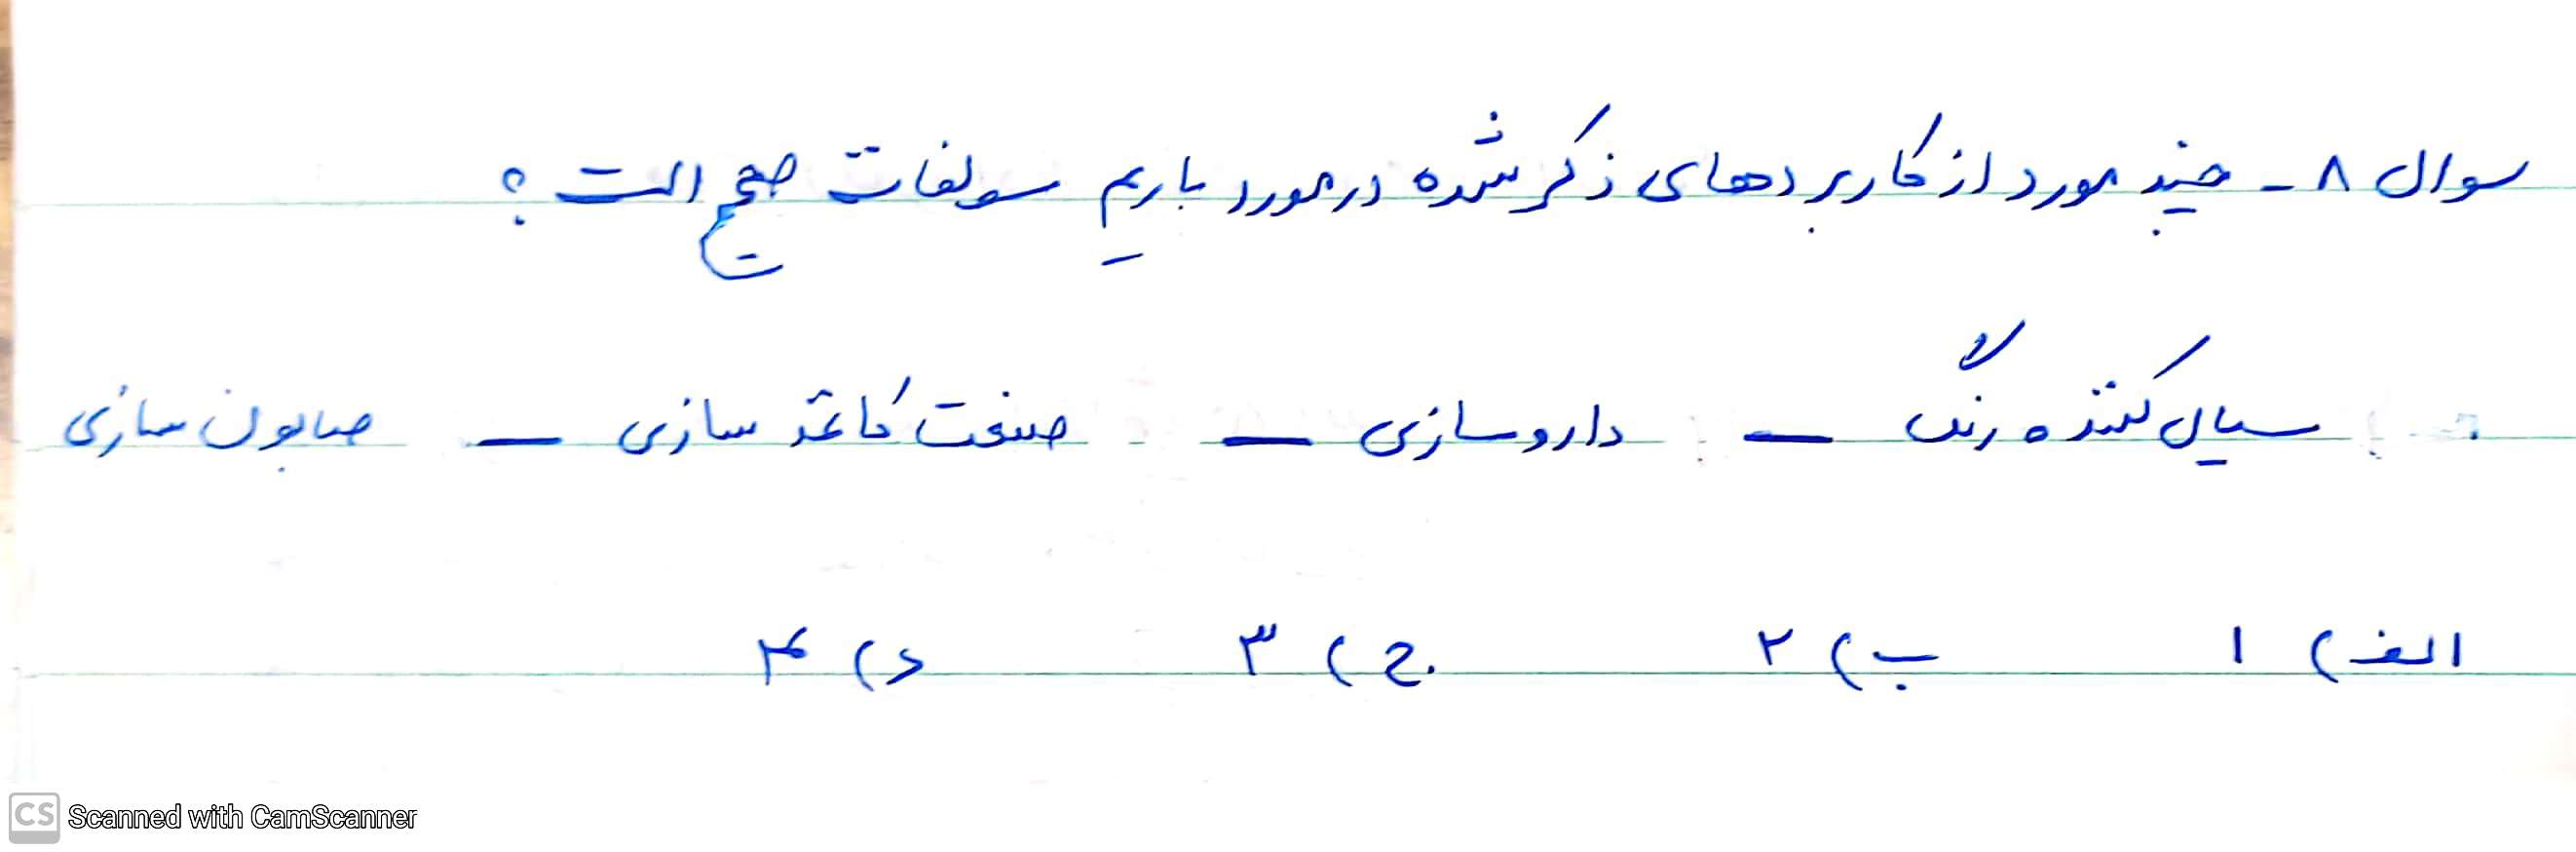 سوال ۸ - چند مورد از کاربردهای ذکر شده در مورد باریم سولفات صحیح است ؟
سیال کننده رنگ — داروسازی — صنعت کاغذ سازی — صابون سازی
الف) ۱ ب) ۲ ج) ۳ د) ۴
CS Scanned with CamScanner